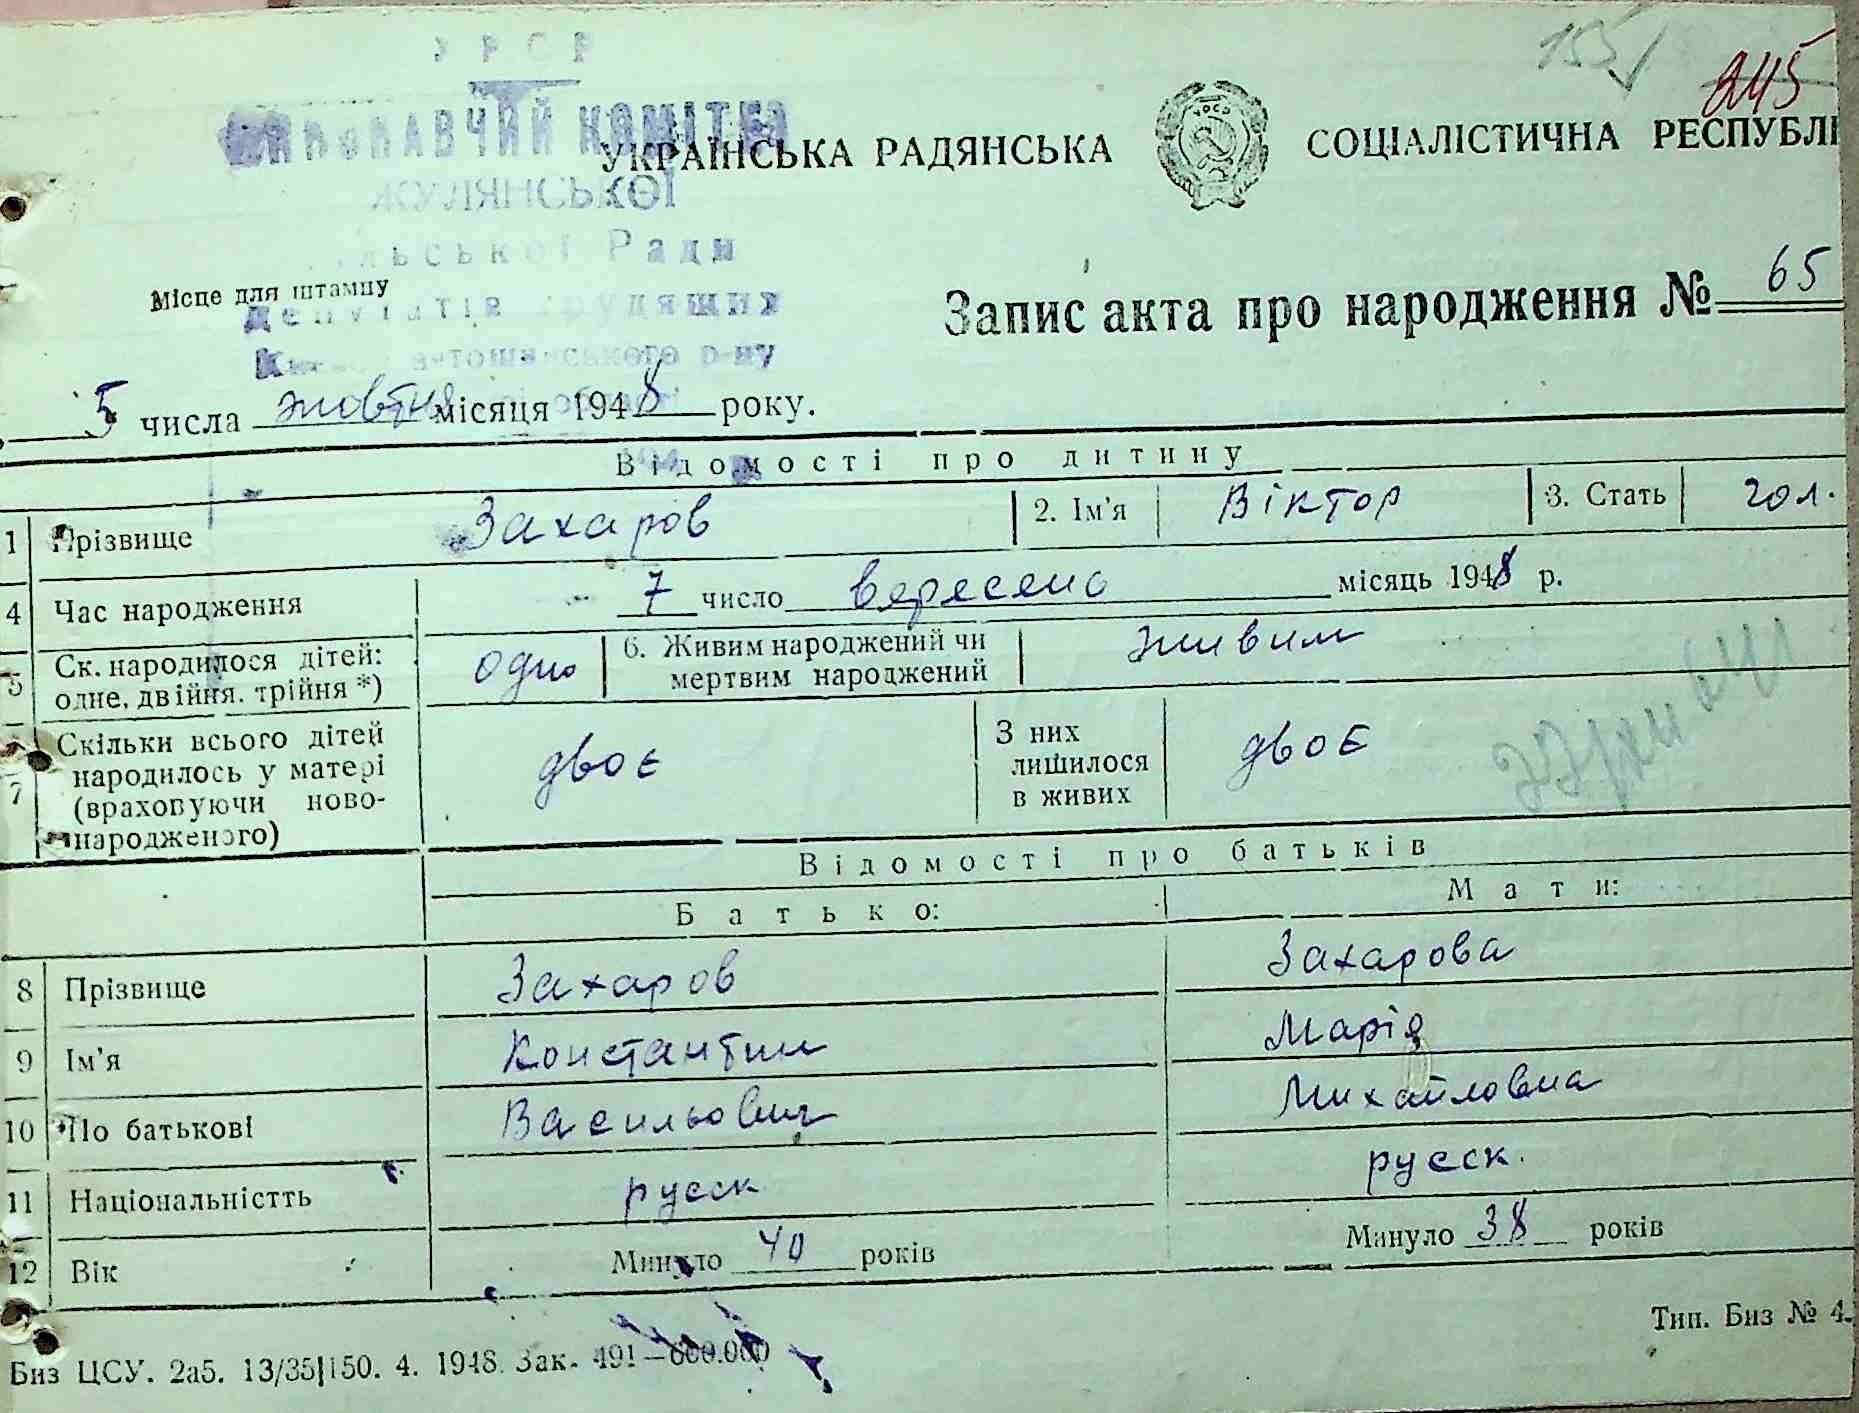 У Р С Р
155
245
ВИКОНАВЧИЙ КОМІТЕТ
УКРАЇНСЬКА РАДЯНСЬКА СОЦІАЛІСТИЧНА РЕСПУБЛІ
ЖУЛЯНСЬКОЇ
Ради
Місце для штампу
Депутатів трудящих
р-ну
Запис акта про народження № 65
5 числа жовтня місяця 1948 року.
Відомості про дитину
1 Прізвище Захаров 2. Ім'я Віктор 3. Стать чол.
4 Час народження 7 число вересень місяць 1948 р.
5 Ск. народилося дітей: одне, двійня, трійня *) одно 6. Живим народжений чи мертвим народжений живим
7 Скільки всього дітей народилось у матері (враховуючи ново-народженого) двоє З них лишилося в живих двоє
Відомості про батьків
Батько: Мати:
8 Прізвище Захаров Захарова
9 Ім'я Константин Марія
10 По батькові Васильович Михайловна
11 Національністть русск русск.
12 Вік Минуло 40 років Минуло 38 років
Тип. Биз № 4.
Биз ЦСУ. 2а5. 13/35|150. 4. 1948. Зак. 491—600.000